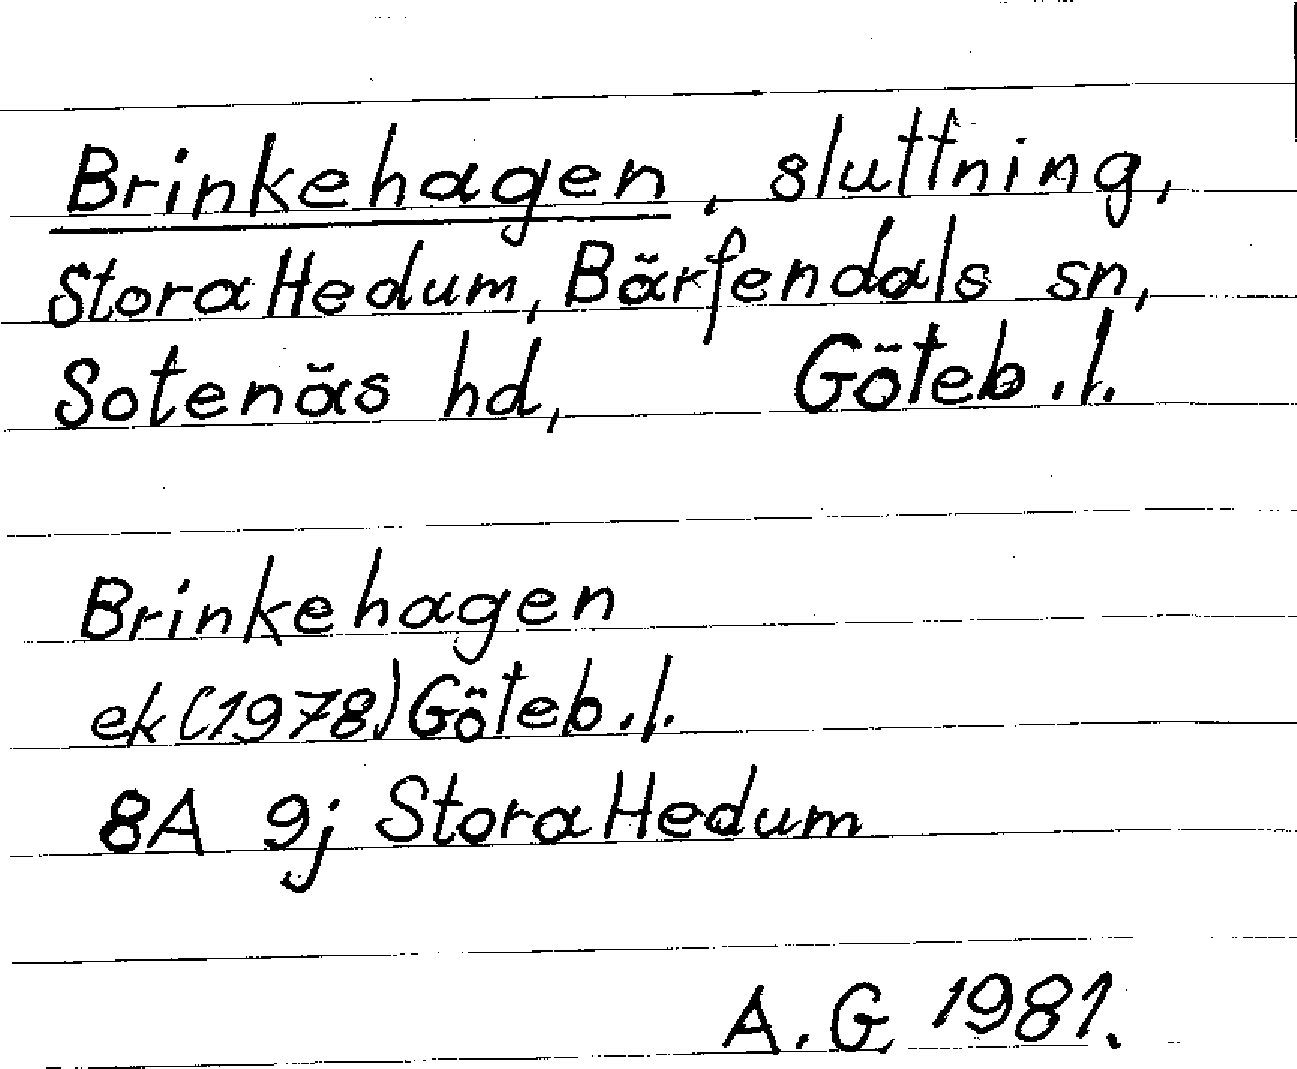 Brinkehagen, sluttning,
Stora Hedum, Bärfendals sn,
Sotenäs hd, Göteb. l.
Brinkehagen
ek (1978) Göteb. l.
8A 9j Stora Hedum
A. G. 1981.